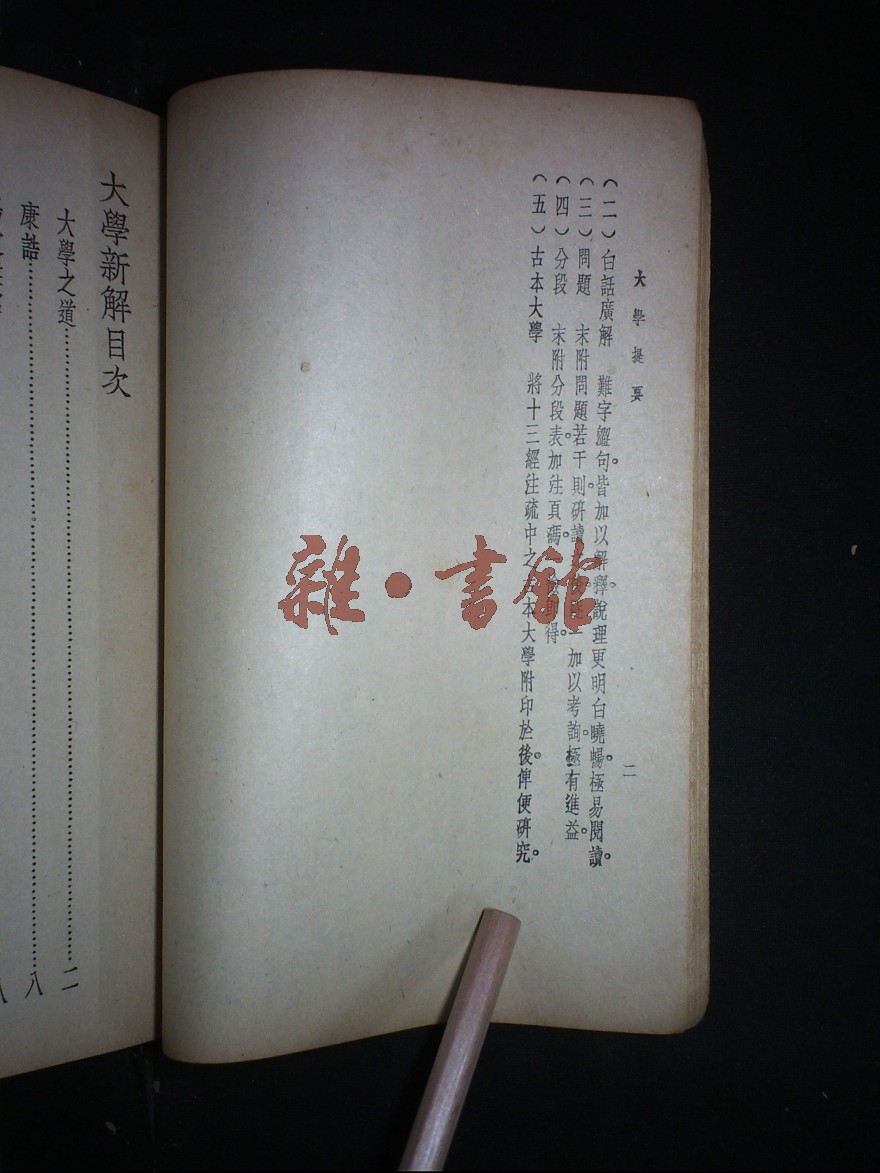 大學提要
二
（二）白話廣解　難字澀句。皆加以解釋。說理更明白曉暢。極易閱讀。
（三）問題　末附問題若干則。研讀一加以考詢。極有進益。
（四）分段　末附分段表。加注頁碼。即得。
（五）古本大學　將十三經注疏中之古本大學附印於後。俾便研究。
大學新解目次
大學之道……二
康誥……八
雜·書館